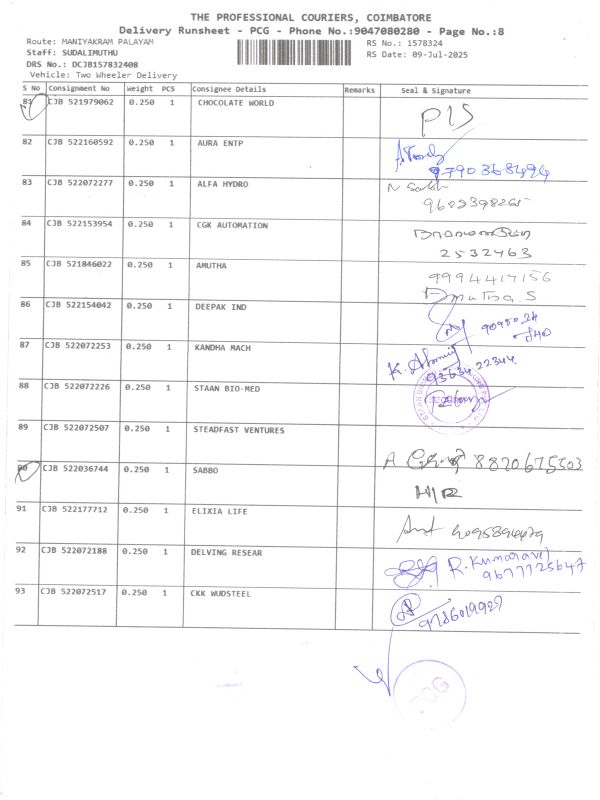 THE PROFESSIONAL COURIERS, COIMBATORE
Delivery Runsheet - PCG - Phone No.:9047080280 - Page No.:8
Route: MANIYAKRAM PALAYAM
RS No.: 1578324
Staff: SUDALIMUTHU
RS Date: 09-Jul-2025
DRS No.: DCJB157832408
Vehicle: Two Wheeler Delivery
S No Consignment No Weight PCS Consignee Details Remarks Seal & Signature
81 CJB 521979062 0.250 1 CHOCOLATE WORLD
82 CJB 522160592 0.250 1 AURA ENTP
83 CJB 522072277 0.250 1 ALFA HYDRO
84 CJB 522153954 0.250 1 CGK AUTOMATION
2532463
85 CJB 521846022 0.250 1 AMUTHA 9994417156
Amutha S
86 CJB 522154042 0.250 1 DEEPAK IND
87 CJB 522072253 0.250 1 KANDHA MACH
9363422344
88 CJB 522072226 0.250 1 STAAN BIO-MED
89 CJB 522072507 0.250 1 STEADFAST VENTURES
8820675303
90 CJB 522036744 0.250 1 SABBO H/R
91 CJB 522177712 0.250 1 ELIXIA LIFE
92 CJB 522072188 0.250 1 DELVING RESEAR R.Kumaravel
9677725647
93 CJB 522072517 0.250 1 CKK WUDSTEEL
9786019927
PCG